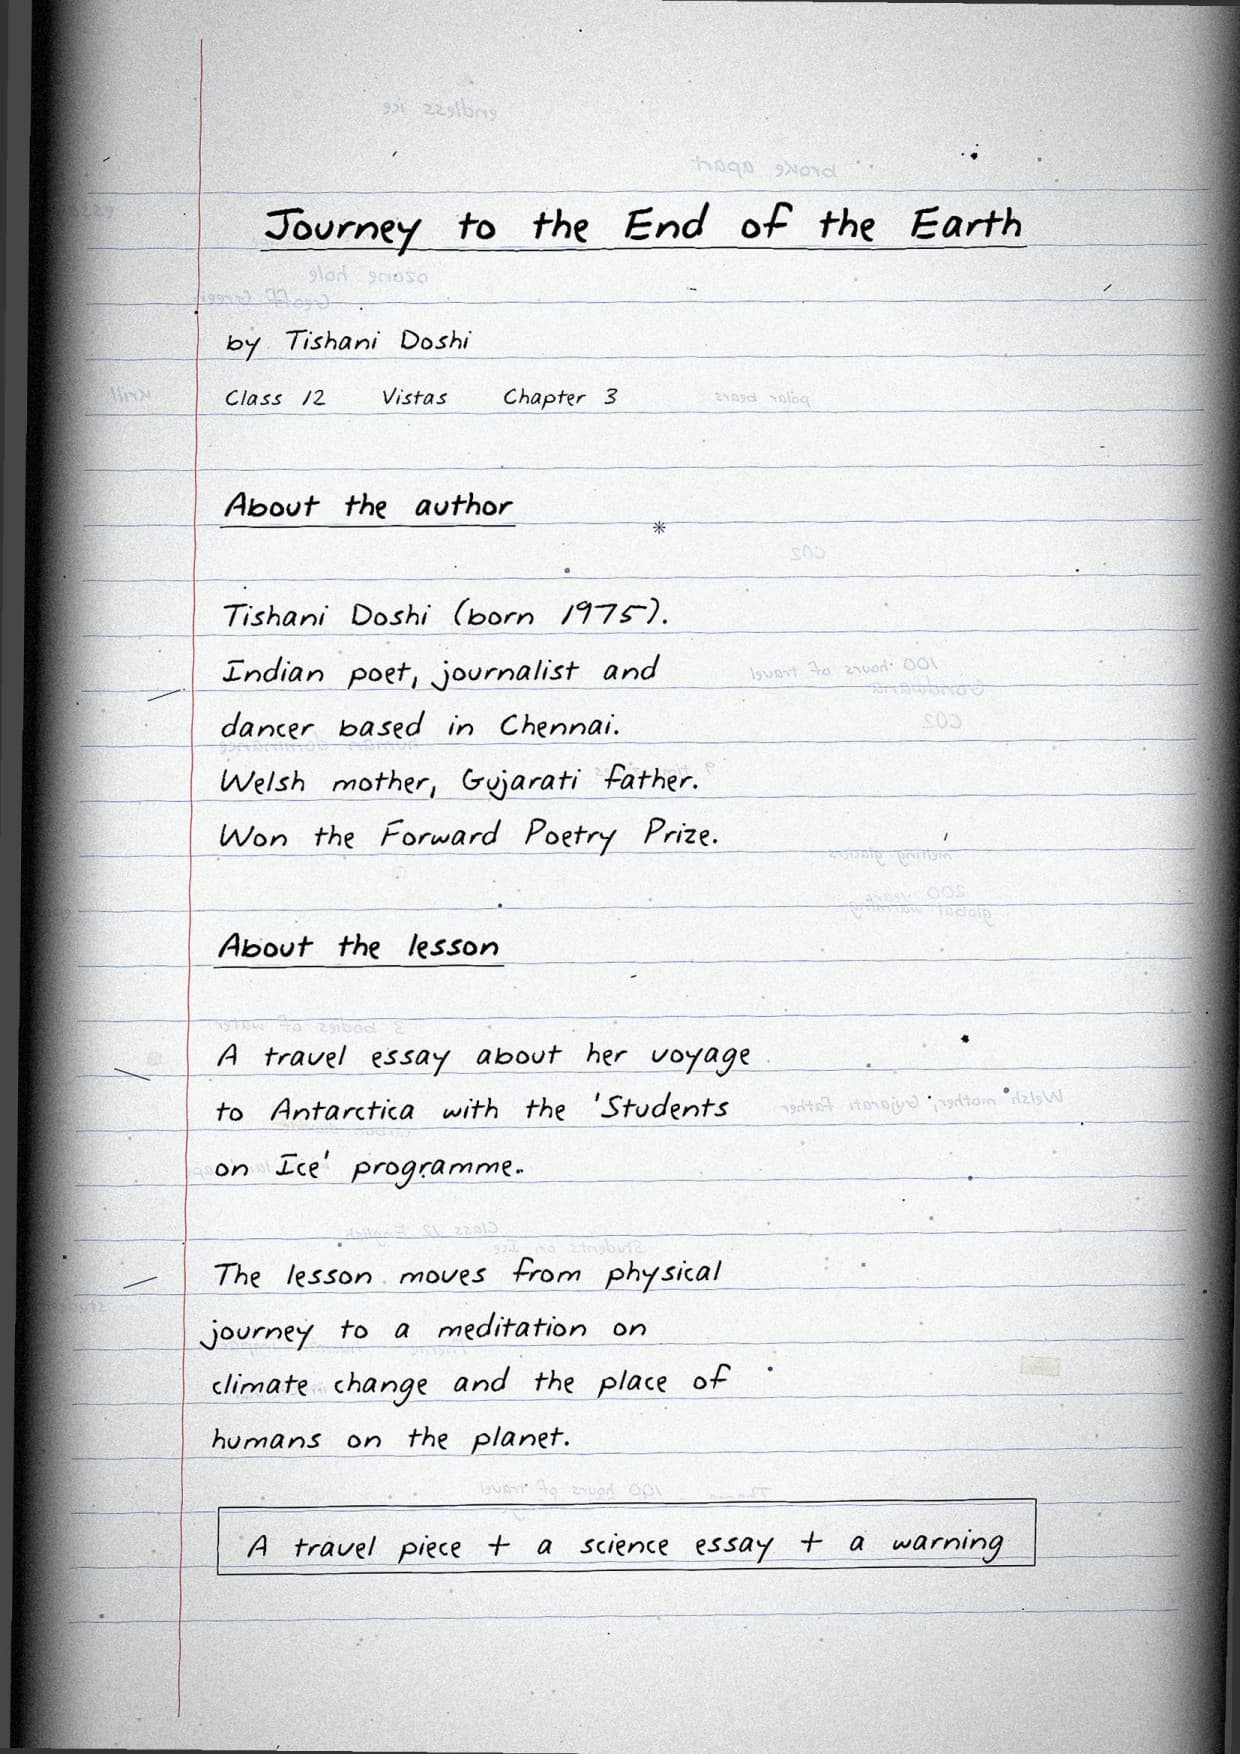 Journey to the End of the Earth
by Tishani Doshi
Class 12 Vistas Chapter 3
About the author
Tishani Doshi (born 1975).
Indian poet, journalist and
dancer based in Chennai.
Welsh mother, Gujarati father.
Won the Forward Poetry Prize.
About the lesson
A travel essay about her voyage
to Antarctica with the 'Students
on Ice' programme.
The lesson moves from physical
journey to a meditation on
climate change and the place of
humans on the planet.
A travel piece + a science essay + a warning